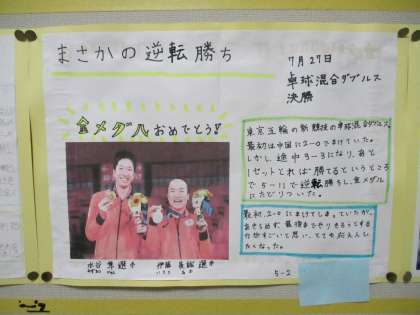 まさかの逆転勝ち
7月27日
卓球混合ダブルス
決勝
金メダルおめでとう!
東京五輪の新競技の卓球混合ダブルス。
最初は中国に2-0でまけていた。
しかし途中3-3になり、あと
1セットとれば勝てるというところ
で5-11で逆転勝ちし、金メダル
にたどりついた。
最初、2-0にまけてしまっていたが、
あきらめず、最後までやりきろうとする
すごいと思い、とても応えんし
たくなった。
水谷 隼選手
伊藤 美誠選手
5-2